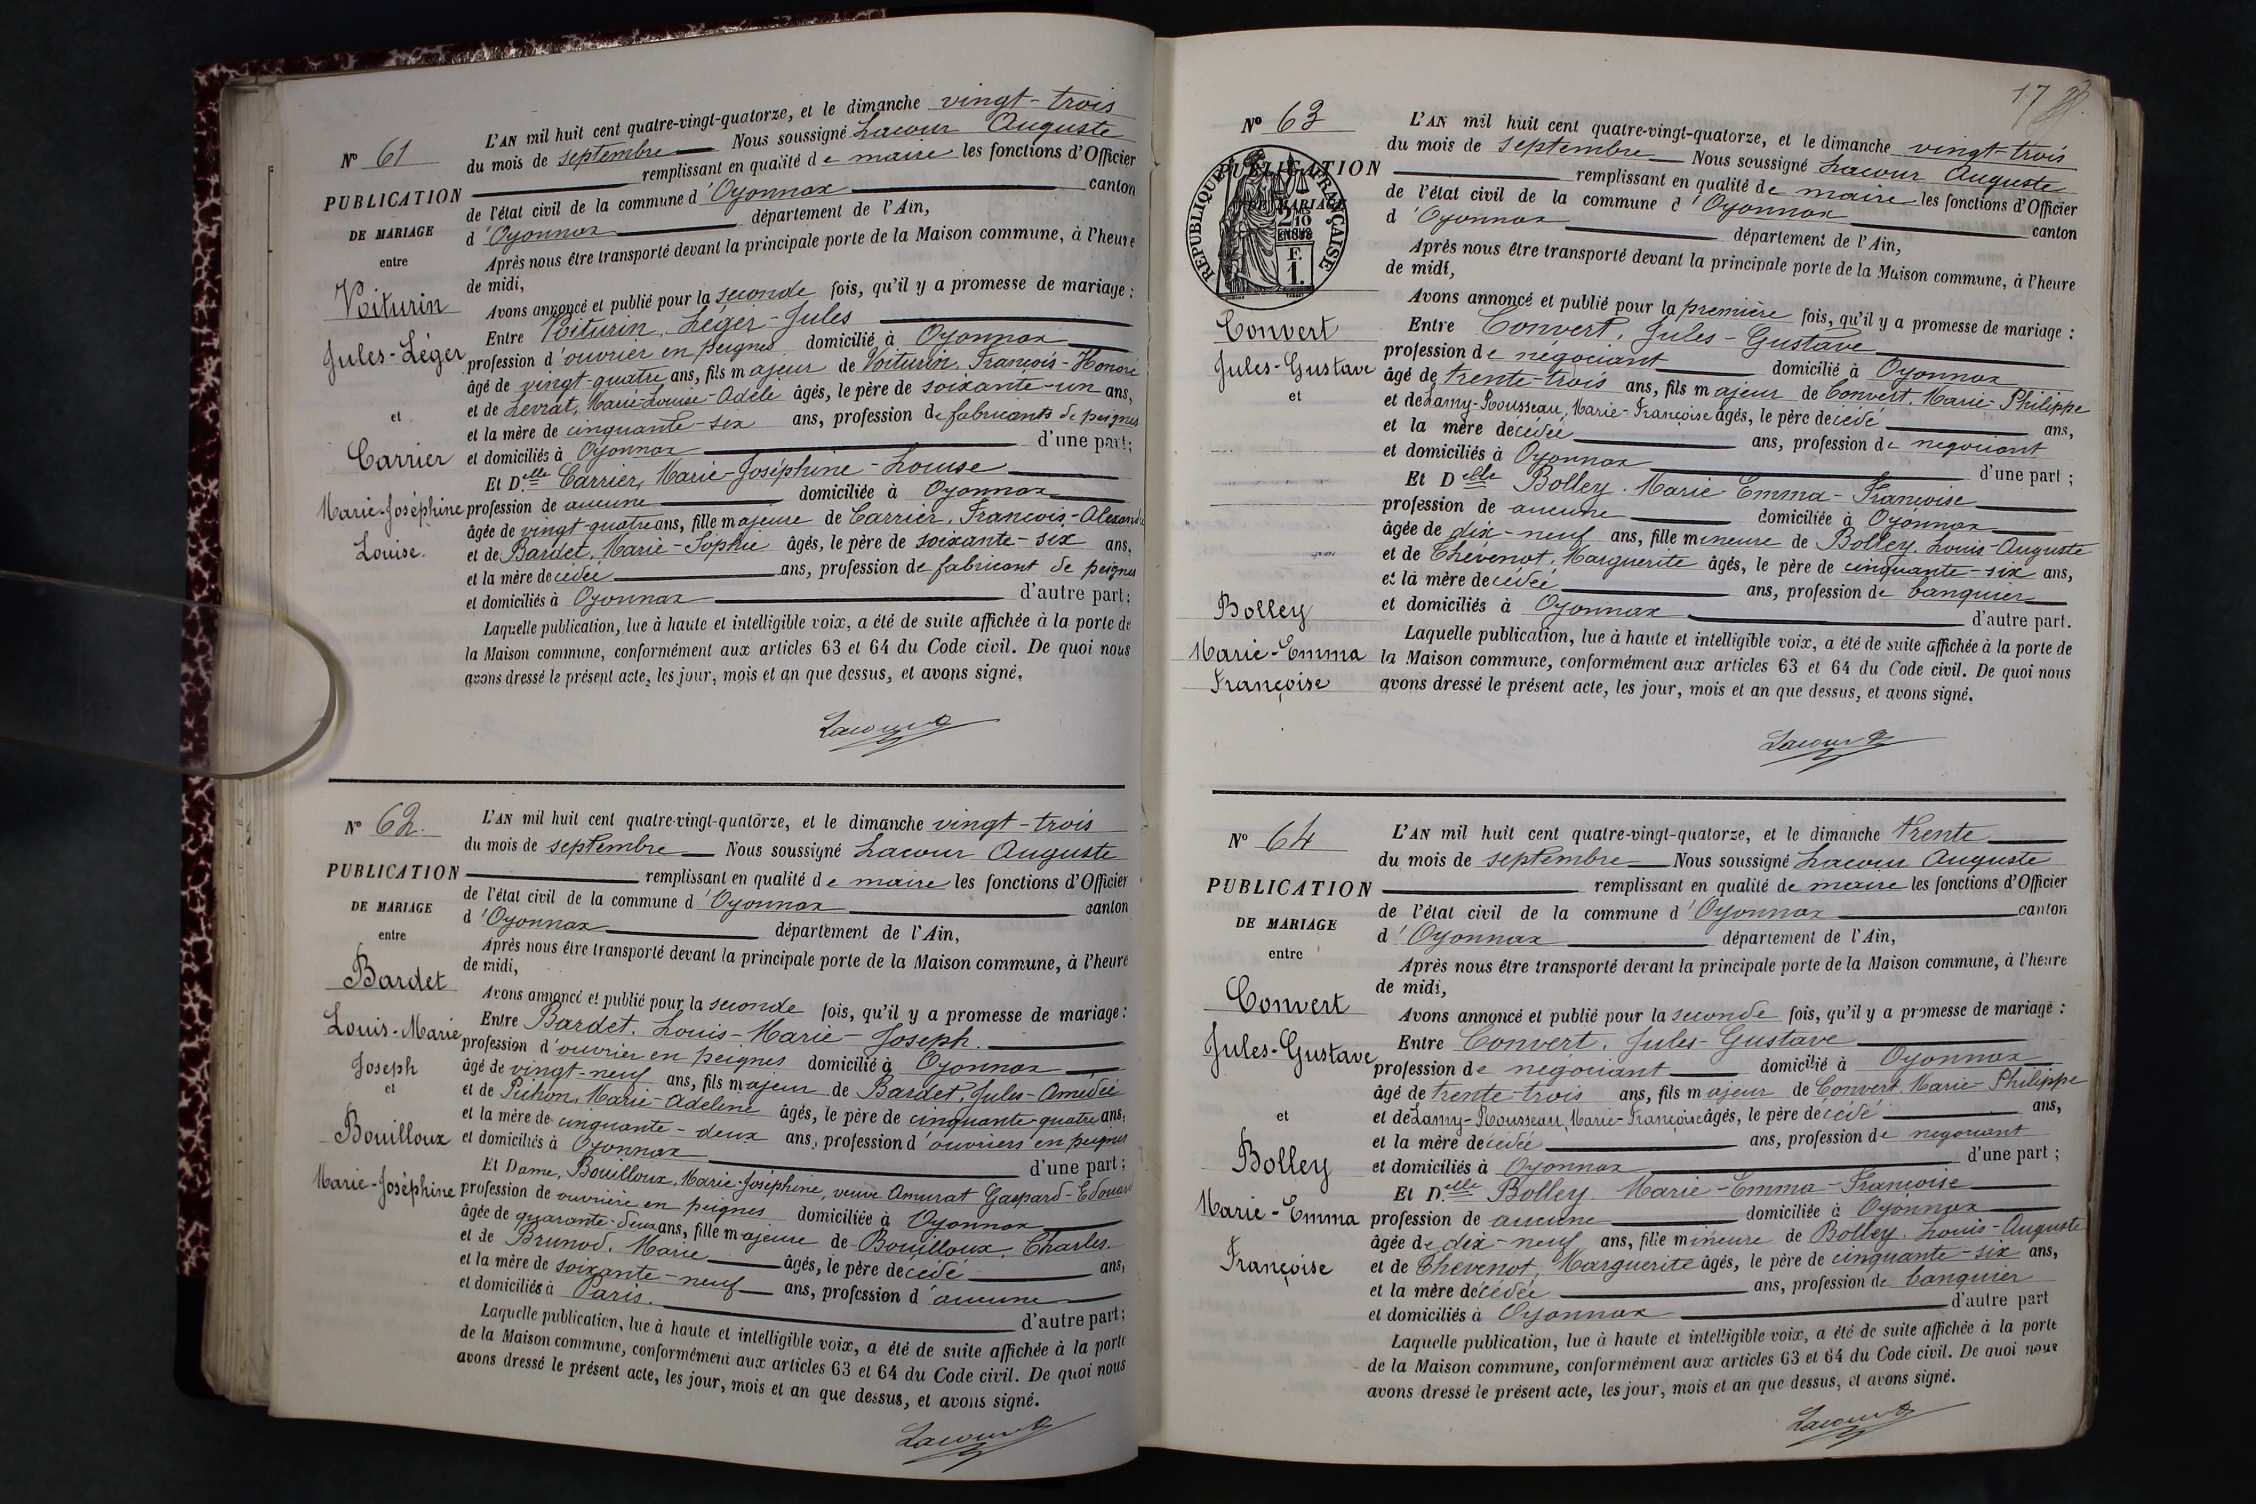 N° 61
PUBLICATION
DE MARIAGE
entre
Voiturin
Jules-Léger
et
Carrier
Marie-Joséphine
Louise.
L'AN mil huit cent quatre-vingt-quatorze, et le dimanche vingt-trois
du mois de septembre Nous soussigné Lacour Auguste
remplissant en qualité de maire les fonctions d'Officier
de l'état civil de la commune d'Oyonnax canton
d'Oyonnax département de l'Ain,
Après nous être transporté devant la principale porte de la Maison commune, à l'heure
de midi,
Avons annoncé et publié pour la seconde fois, qu'il y a promesse de mariage :
Entre Voiturin, Léger-Jules
profession d'ouvrier en peignes domicilié à Oyonnax
âgé de vingt-quatre ans, fils majeur de Voiturin, François-Honoré
et de Levrat, Marie-Louise-Adèle âgés, le père de soixante-un ans,
et la mère de cinquante-six ans, profession de fabricants de peignes
et domiciliés à Oyonnax d'une part;
Et D.elle Carrier, Marie-Joséphine-Louise
profession de aucune domiciliée à Oyonnax
âgée de vingt quatre ans, fille majeure de Carrier, François-
et de Bardet, Marie-Sophie âgés, le père de soixante-six ans,
et la mère decédée ans, profession de fabricant de peignes
et domiciliés à Oyonnax d'autre part;
Laquelle publication, lue à haute et intelligible voix, a été de suite affichée à la porte de
la Maison commune, conformément aux articles 63 et 64 du Code civil. De quoi nous
avons dressé le présent acte, les jour, mois et an que dessus, et avons signé.
Lacour A
N° 62.
PUBLICATION
DE MARIAGE
entre
Bardet
Louis-Marie
Joseph
et
Bouilloux
Marie-Joséphine
L'AN mil huit cent quatre-vingt-quatorze, et le dimanche vingt-trois
du mois de septembre Nous soussigné Lacour Auguste
remplissant en qualité de maire les fonctions d'Officier
de l'état civil de la commune d'Oyonnax canton
d'Oyonnax département de l'Ain,
Après nous être transporté devant la principale porte de la Maison commune, à l'heure
de midi,
Avons annoncé et publié pour la seconde fois, qu'il y a promesse de mariage :
Entre Bardet, Louis-Marie-Joseph.
profession d'ouvrier en peignes domicilié à Oyonnax
âgé de vingt-neuf ans, fils majeur de Bardet, Jules-Amédée
et de Pichon, Marie-Adeline âgés, le père de cinquante-quatre ans,
et la mère de cinquante-deux ans, profession d'ouvriers en peignes
et domiciliés à Oyonnax d'une part;
Et Dame, Bouilloux, Marie-Joséphine, veuve Amurat Gaspard-Edouard
profession de ouvrière en peignes domiciliée à Oyonnax
âgée de quarante-deux ans, fille majeure de Bouilloux, Charles.
et de Brunod, Marie âgés, le père decédé ans,
et la mère de soixante-neuf ans, profession d'aucune
et domiciliés à Paris. d'autre part;
Laquelle publication, lue à haute et intelligible voix, a été de suite affichée à la porte
de la Maison commune, conformément aux articles 63 et 64 du Code civil. De quoi nous
avons dressé le présent acte, les jour, mois et an que dessus, et avons signé.
Lacour A
17
N° 63
PUBLICATION
DE MARIAGE
RÉPUBLIQUE FRANÇAISE
F.
1.
Convert
Jules-Gustave
et
Bolley
Marie-Emma
Françoise
L'AN mil huit cent quatre-vingt-quatorze, et le dimanche vingt-trois
du mois de septembre Nous soussigné Lacour Auguste
remplissant en qualité de maire les fonctions d'Officier
de l'état civil de la commune d'Oyonnax canton
d'Oyonnax département de l'Ain,
Après nous être transporté devant la principale porte de la Maison commune, à l'heure
de midi,
Avons annoncé et publié pour la première fois, qu'il y a promesse de mariage :
Entre Convert, Jules-Gustave
profession de négociant domicilié à Oyonnax
âgé de trente-trois ans, fils majeur de Convert, Marie-Philippe
et de Lamy-Rousseau, Marie-Françoise âgés, le père decédé ans,
et la mère decédée ans, profession de negociant
et domiciliés à Oyonnax d'une part ;
Et Delle Bolley, Marie Emma-Françoise
profession de aucune domiciliée à Oyonnax
âgée de dix-neuf ans, fille mineure de Bolley, Louis-Auguste
et de Thévenot, Marguerite âgés, le père de cinquante-six ans,
et la mère decédée ans, profession de banquier
et domiciliés à Oyonnax d'autre part.
Laquelle publication, lue à haute et intelligible voix, a été de suite affichée à la porte de
la Maison commune, conformément aux articles 63 et 64 du Code civil. De quoi nous
avons dressé le présent acte, les jour, mois et an que dessus, et avons signé.
Lacour A
N° 64
PUBLICATION
DE MARIAGE
entre
Convert
Jules-Gustave
et
Bolley
Marie-Emma
Françoise
L'AN mil huit cent quatre-vingt-quatorze, et le dimanche trente
du mois de septembre Nous soussigné Lacour Auguste
remplissant en qualité de maire les fonctions d'Officier
de l'état civil de la commune d'Oyonnax canton
d'Oyonnax département de l'Ain,
Après nous être transporté devant la principale porte de la Maison commune, à l'heure
de midi,
Avons annoncé et publié pour la seconde fois, qu'il y a promesse de mariage :
Entre Convert, Jules-Gustave
profession de négociant domicilié à Oyonnax
âgé de trente-trois ans, fils majeur de Convert, Marie-Philippe
et de Lamy-Rousseau, Marie-Françoise âgés, le père décédé ans,
et la mère decédée ans, profession de negociant
et domiciliés à Oyonnax d'une part ;
Et D.elle Bolley Marie-Emma-Françoise
profession de aucune domiciliée à Oyonnax
âgée de dix-neuf ans, fille mineure de Bolley, Louis-Auguste
et de Thevenot, Marguerite âgés, le père de cinquante-six ans,
et la mère décédée ans, profession de banquier
et domiciliés à Oyonnax d'autre part
Laquelle publication, lue à haute et intelligible voix, a été de suite affichée à la porte
de la Maison commune, conformément aux articles 63 et 64 du Code civil. De quoi nous
avons dressé le présent acte, les jour, mois et an que dessus, et avons signé.
Lacour A